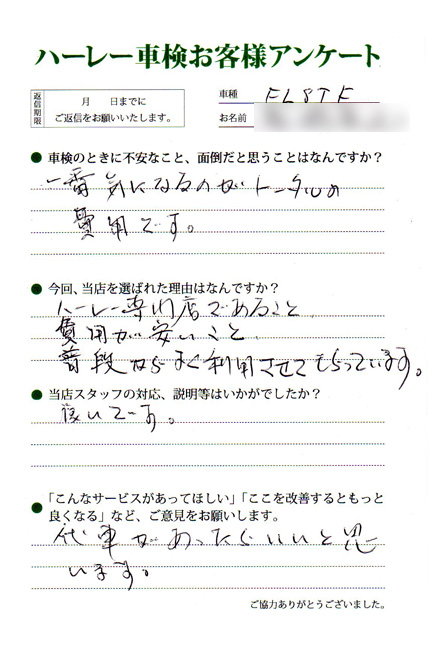 ハーレー車検お客様アンケート
返信期限
月　日までに
ご返信をお願いいたします。
車種 FLSTF
お名前
● 車検のときに不安なこと、面倒だと思うことはなんですか？
一番気になるのがトータルの
費用です。
● 今回、当店を選ばれた理由はなんですか？
ハーレー専門店であること、
費用が安いこと、
普段からよく利用させてもらっています。
● 当店スタッフの対応、説明等はいかがでしたか？
良いです。
● 「こんなサービスがあってほしい」「ここを改善するともっと
良くなる」など、ご意見をお願いします。
代車があったらいいと思
います。
ご協力ありがとうございました。